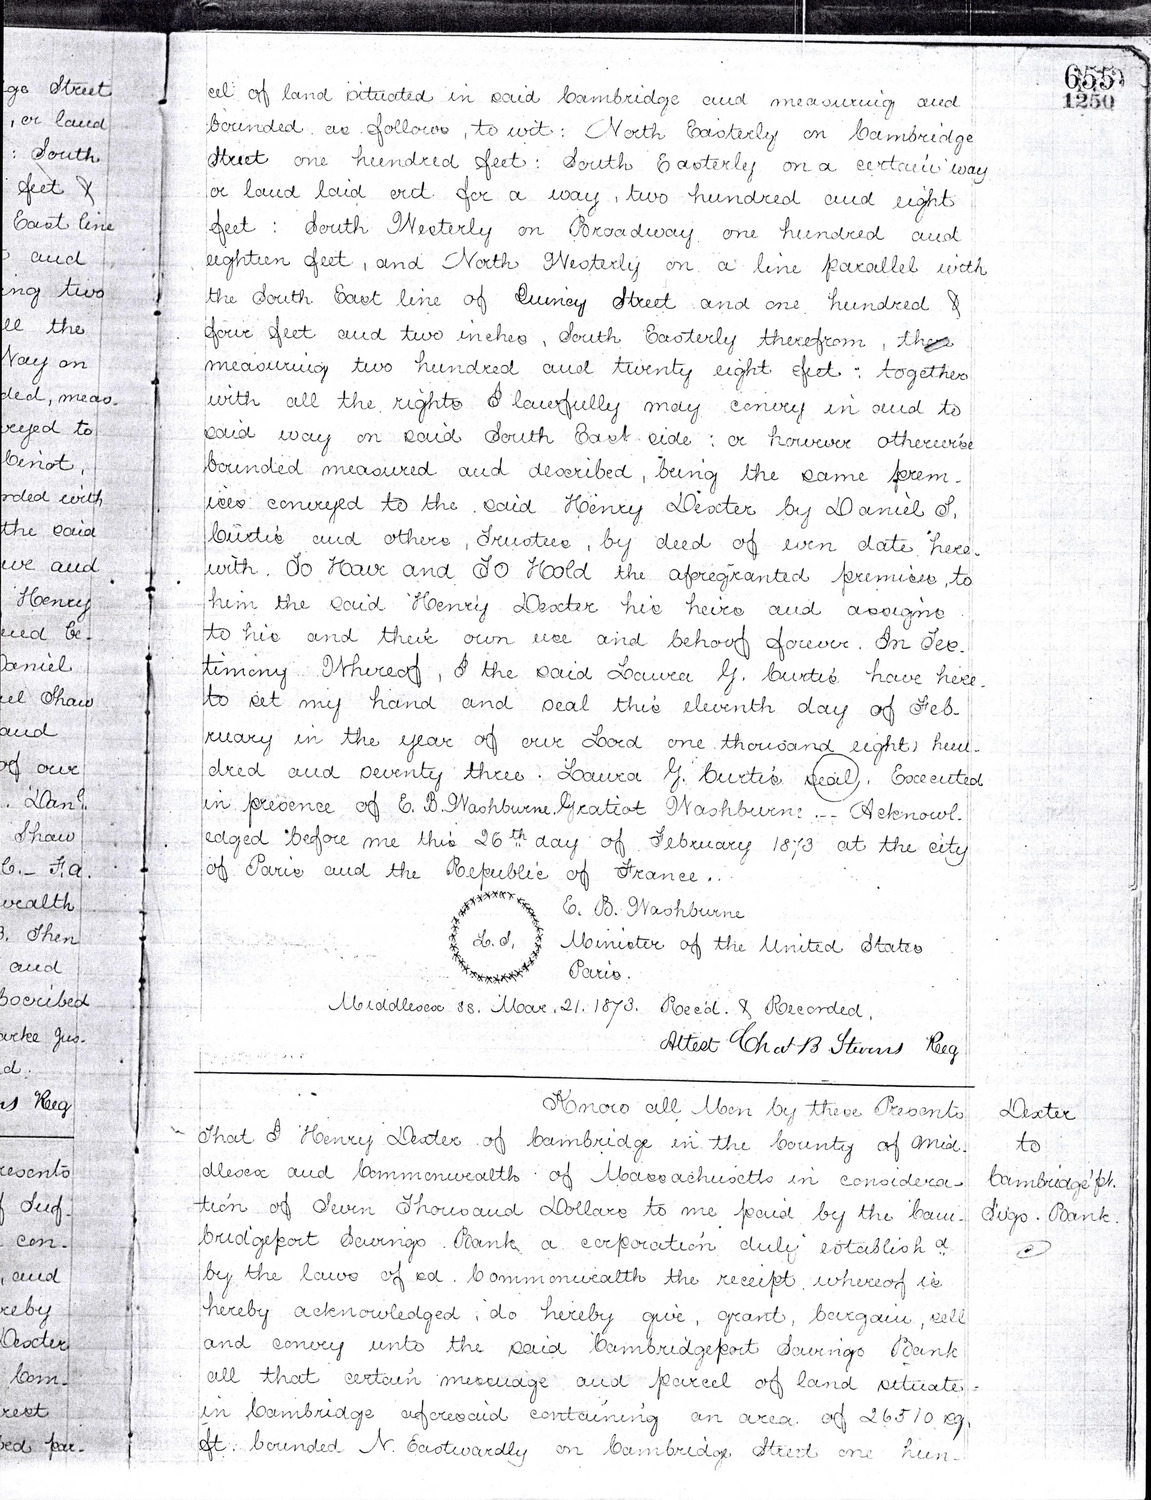 655
1250
cel of land situated in said Cambridge and measuring and
bounded as follows, to wit: North Easterly on Cambridge
Street one hundred feet: South Easterly on a certain way
or land laid out for a way, two hundred and eight
feet: South Westerly on Broadway one hundred and
eighteen feet, and North Westerly on a line parallel with
the South East line of Quincy Street and one hundred &
four feet and two inches, South Easterly therefrom, there
measuring two hundred and twenty eight feet: together
with all the rights I lawfully may convey in and to
said way on said South East side: or however otherwise
bounded measured and described, being the same prem-
ises conveyed to the said Henry Dexter by Daniel S.
Curtis and others, Trustees, by deed of even date here-
with. To Have and To Hold the aforegranted premises, to
him the said Henry Dexter his heirs and assigns
to his and their own use and behoof forever. In Tes-
timony Whereof, I the said Laura G. Curtis have here-
to set my hand and seal this eleventh day of Feb-
ruary in the year of our Lord one thousand eight hun-
dred and seventy three. Laura G. Curtis seal. Executed
in presence of E. B. Washburne. Gratiot Washburne -- Acknowl-
edged before me this 26th day of February 1873 at the city
of Paris and the Republic of France..
E. B. Washburne
L. S. Minister of the United States
Paris.
Middlesex ss. Mar. 21. 1873. Rec'd. & Recorded,
Attest Chas B Stevens Reg
Know all Men by these Presents
That I Henry Dexter of Cambridge in the County of Mid-
dlesex and Commonwealth of Massachusetts in considera-
tion of Seven Thousand Dollars to me paid by the Cam-
bridgeport Savings Bank a corporation duly establish d
by the laws of sd. Commonwealth the receipt whereof is
hereby acknowledged, do hereby give, grant, bargain, sell
and convey unto the said Cambridgeport Savings Bank
all that certain messuage and parcel of land situate
in Cambridge aforesaid containing an area of 26510 sq.
ft. bounded N. Eastwardly on Cambridge Street one hun-
Dexter
to
Cambridge'pt.
Svgs. Bank.
ge Street
, or land
: South
feet &
East line
and
ing two
ll the
Way on
ded, meas-
veyed to
Benot,
rded with
the said
ve and
Henry
Daniel
el Shaw
and
of our
. Danl.
Shaw
wealth
. Then
and
bscribed
arke Jus-
d.
ns Reg
resents
f Suf-
con-
, and
reby
Dexter
Com-
rest
ed par-